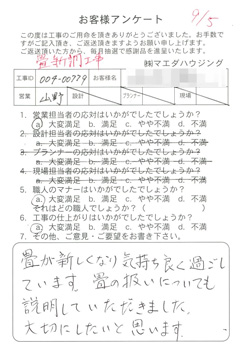 お客様アンケート
9/5
この度は工事のご用命を頂きありがとうございました。お手数で
すがご記入頂き、ご返送頂きますようお願い申し上げます。
ご返送頂いた方から、毎月抽選で感謝品を進呈いたします。
畳新調工事
㈱マエダハウジング
工事ID
009-00779
お客様名
営業
山野
設計
プランナー
現場
1. 営業担当者の応対はいかがでしたでしょうか?
a. 大変満足 b. 満足 c. やや不満 d. 不満
2. 設計担当者の応対はいかがでしたでしょうか?
a. 大変満足 b. 満足 c. やや不満 d. 不満
3. プランナーの応対はいかがでしたでしょうか?
a. 大変満足 b. 満足 c. やや不満 d. 不満
4. 現場担当者の応対はいかがでしたでしょうか?
a. 大変満足 b. 満足 c. やや不満 d. 不満
5. 職人のマナーはいかがでしたでしょうか?
a. 大変満足 b. 満足 c. やや不満 d. 不満
それはどの職人でしょうか? ( )
6. 工事の仕上がりはいかがでしたでしょうか?
a. 大変満足 b. 満足 c. やや不満 d. 不満
7. その他、ご意見・ご要望をお書き下さい。
畳が新しくなり気持ち良く過ごし
ています。畳の扱いについても
説明していただきました。
大切にしたいと思います。